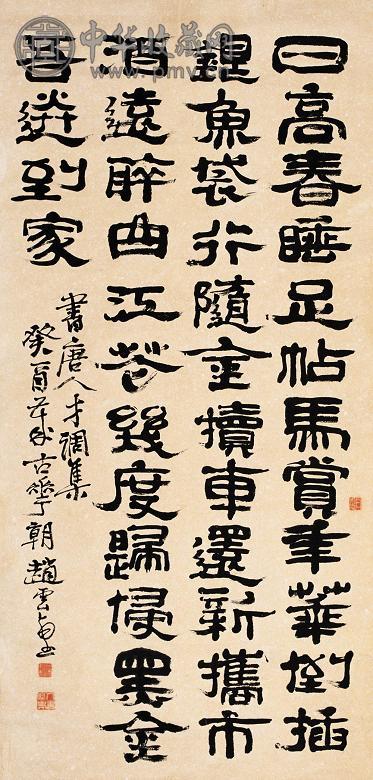 中华收藏网
www.pmv.cn
日高春睡足帖馬賞年華倒插
銀魚袋行隨金犢車還新攜市
酒遠醉曲江花幾度歸侵黑金
吾送到家
書唐人才調集
癸酉 古 朝趙雲壑